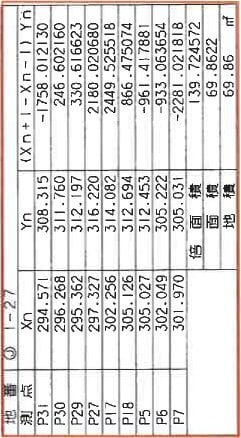 地番 1-27
測点 Xn Yn (Xn+1-Xn-1)Yn
P31 294.571 308.315 -1758.012130
P30 296.268 311.760 246.602160
P29 295.362 312.197 330.616623
P27 297.327 316.220 2180.020680
P17 302.256 314.082 2449.525518
P18 305.126 312.694 866.475074
P5 305.027 312.453 -961.417881
P6 302.049 305.222 -933.063654
P7 301.970 305.031 -2281.021818
倍面積 139.724572
面積 69.8622
地積 69.86 ㎡